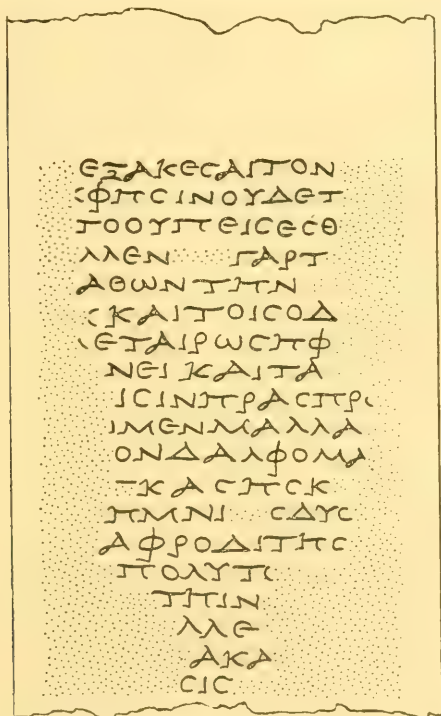 ΕΞΑΚΕϹΑΙΤΟΝ
ΦΗϹΙΝΟΥΔΕΤ
ΤΟΟΥΠΕΙϹΕϹΘ
ΛΛΕΝ ΓΑΡΤ
ΑΘΩΝΤΗΝ
ΚΑΙΤΟΙϹΟΔ
ΕΤΑΙΡΩϹΗΦ
ΝΕΙΚΑΙΤΑ
ΙϹΙΝΗΡΑϹΗΡ
ΙΜΕΝΜΑΛΛΑ
ΟΝΔΑΛΦΟΜΑ
ΚΑϹΗϹΚ
ΗΜΝΙ ϹΔΥϹ
ΑΦΡΟΔΙΤΗϹ
ΠΟΛΥΤΙ
ΤΗΙΝ
ΛΛΕ
ΑΚΑ
ϹΙϹ